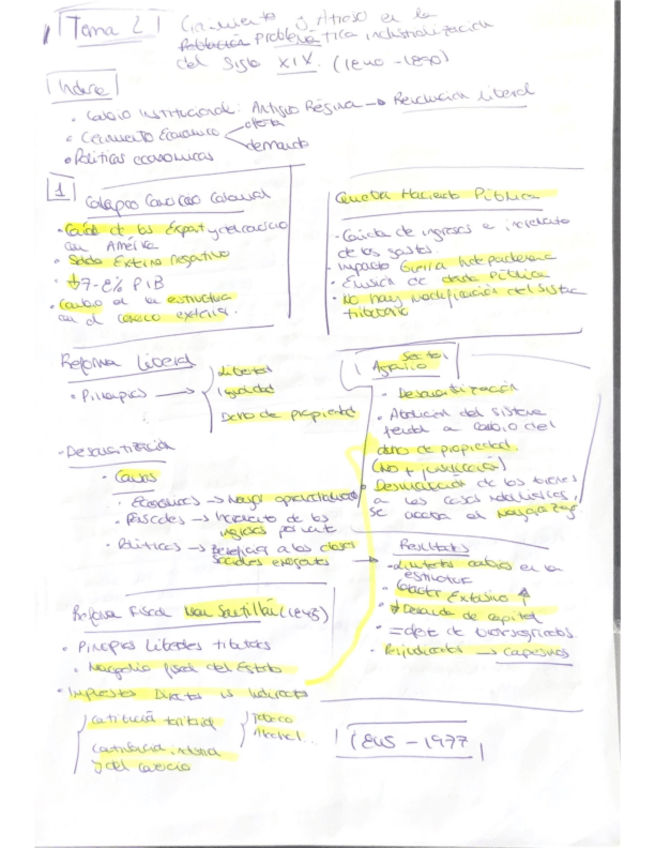 Tema 2 | Crecimiento y Atraso en la
problemática industrialización
del Siglo XIX. (1840 - 1890)
Índice
• Cambio Institucional: Antiguo Régimen → Revolución Liberal
• Crecimiento Económico < oferta
demanda
• Políticas económicas
1
Colapso Comercio Colonial
• Caída de las Export y
en América
• Saldo Externo Negativo
• ↓7-8% PIB
• Cambio en la estructura
en el comercio exterior.
Quiebra Hacienda Pública
• Caída de ingresos e incremento
de los gastos.
• Impacto Guerra Independencia
• Emisión de deuda Pública
• No hay modificación del Sistema
tributario
Reforma Liberal
• Principios →
Libertad
Igualdad
Dcho de propiedad
• Desamortización
• Causas
• Económicas → Mayor
• Fiscales → Incremento de los
ingresos
• Políticas → Beneficiar a las clases
sociales
Sector
Agrario
• Desamortización
• Abolición del sistema
feudal a cambio del
dcho de propiedad.
(No + jurisdicción)
• Desvinculación de los bienes
a las casas nobiliarias.
Se acaba el Mayorazgo
Resultados
cambios en la
estructura
• Carácter Extensivo ↑
• Demanda de capital
• =
• Perjudicados → Campesinos
Reforma Fiscal Mon Santillán (1845)
• Principios Liberales tributarios
• Monopolio fiscal del Estado
• Impuestos Directos vs Indirectos
Contribución territorial
industrial
y del comercio
Tabaco
Alcohol...
1845 - 1977